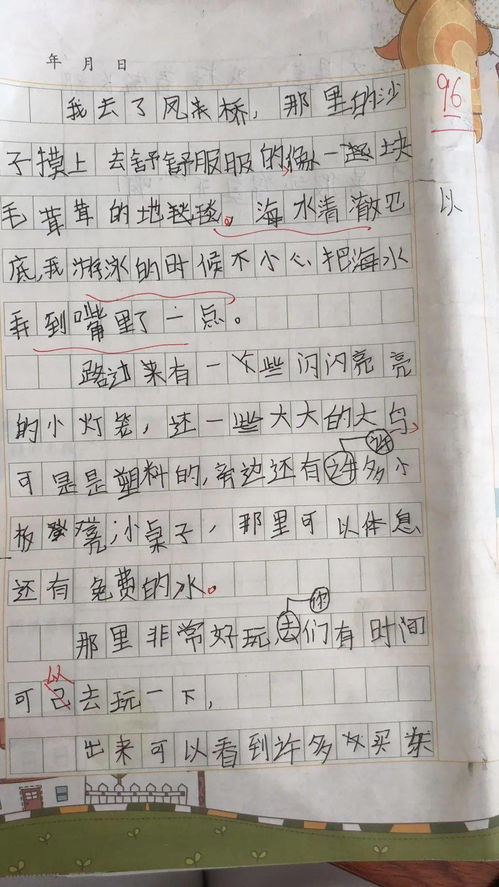 年 月 日
96
我去了风来桥，那里的沙
子摸上去舒舒服服的像一块
毛茸茸的地毯。海水清澈见
以
底，我游泳的时候不小心把海水
弄到嘴里了一点。
路过来有一些闪闪亮亮
的小灯笼，还一些大大的大鸟
可是是塑料的，旁边还有许多小
板凳小桌子，那里可以体息
还有免费的水。
你
那里非常好玩们有时间
可以去玩一下，
出来可以看到许多买东